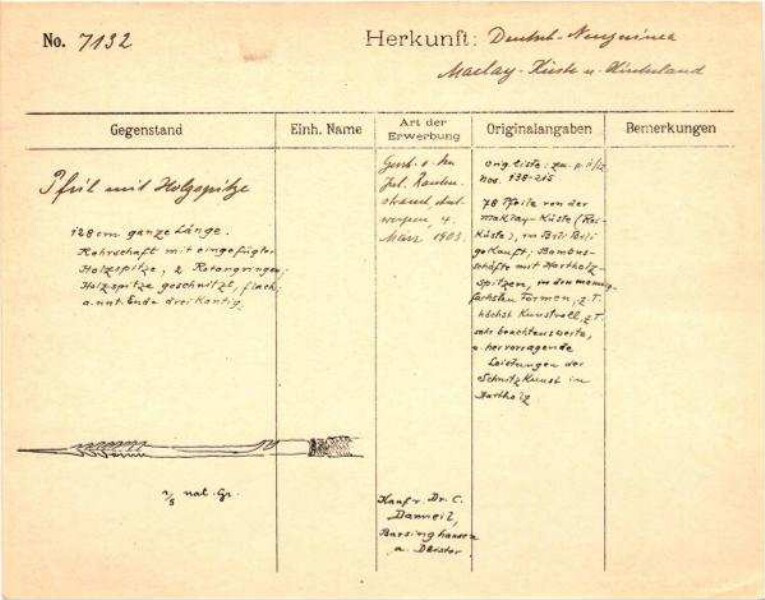 No. 7132
Herkunft: Deutsch-Neuguinea
Maclay-Küste u.
Gegenstand
Einh. Name
Art der
Erwerbung
Originalangaben
Bemerkungen
Pfeil mit Holzspitze
128cm ganze Länge.
Rohrschaft mit eingefügter
Holzspitze, 2 Rotangringen;
Holzspitze geschnitzt, flach,
a. unt. Ende dreikantig.
1/5 nat. Gr.
Gesch. v. Hn
Jul.
März 1903.
Kauf v. Dr. C.
Dameil,
Barsinghausen
a. Deister
Orig. liste: zu
Nos. 138-215
78 Pfeile von der
Maklay-Küste (Rai-
Küste), in Bili Bili
gekauft; Bambus-
schäfte mit Hartholz-
spitzen, in den mannig-
fachsten Formen, z.T.
höchst kunstvoll, z.T.
sehr beachtenswerte,
u. hervorragende
Leistungen der
Schnitzkunst in
Hartholz